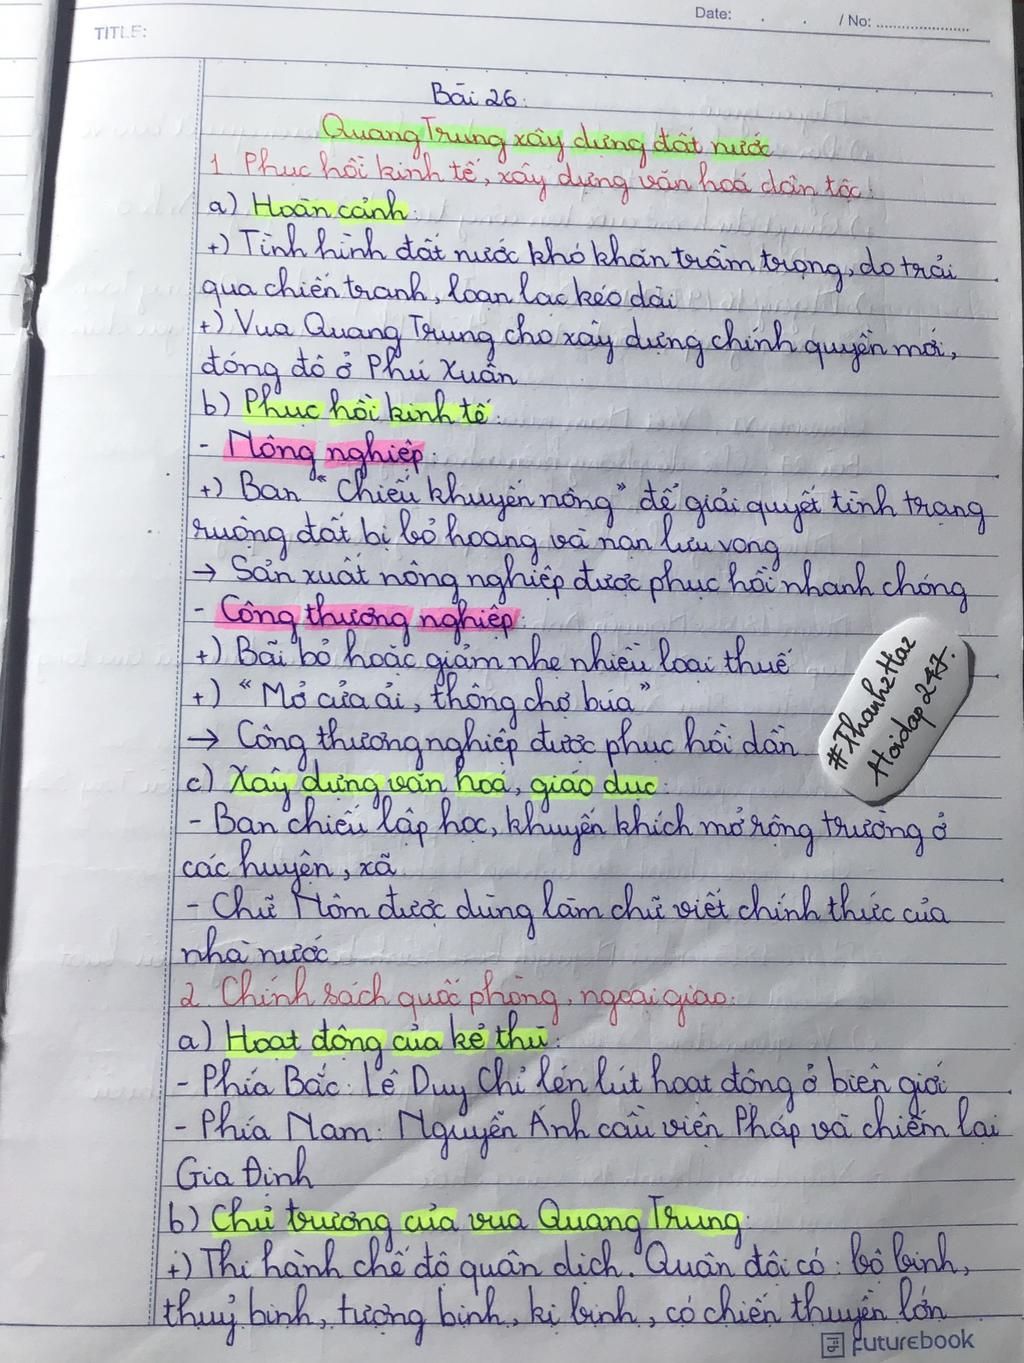 Date: . . / No: ........................
TITLE:
Bài 26:
Quang Trung xây dựng đất nước
1. Phục hồi kinh tế, xây dựng văn hoá dân tộc:
a) Hoàn cảnh:
+) Tình hình đất nước khó khăn trầm trọng, do trải
qua chiến tranh, loạn lạc kéo dài
+) Vua Quang Trung cho xây dựng chính quyền mới,
đóng đô ở Phú Xuân
b) Phục hồi kinh tế:
- Nông nghiệp:
+) Ban "Chiếu khuyến nông" để giải quyết tình trạng
ruộng đất bị bỏ hoang và nạn lưu vong
→ Sản xuất nông nghiệp được phục hồi nhanh chóng
- Công thương nghiệp:
+) Bãi bỏ hoặc giảm nhẹ nhiều loại thuế
+) "Mở cửa ải, thông chợ búa"
→ Công thương nghiệp được phục hồi dần
#Thanhz Haz
Hoidap247.
c) Xây dựng văn hoá, giáo dục:
- Ban chiếu lập học, khuyến khích mở rộng trường ở
các huyện, xã
- Chữ Nôm được dùng làm chữ viết chính thức của
nhà nước
2. Chính sách quốc phòng, ngoại giao:
a) Hoạt động của kẻ thù:
- Phía Bắc: Lê Duy Chỉ lén lút hoạt động ở biên giới
- Phía Nam: Nguyễn Ánh cầu viện Pháp và chiếm lại
Gia Định
b) Chủ trương của vua Quang Trung:
+) Thi hành chế độ quân dịch. Quân đội có: bộ binh,
thuỷ binh, tượng binh, kị binh, có chiến thuyền lớn
FUTUREBOOK